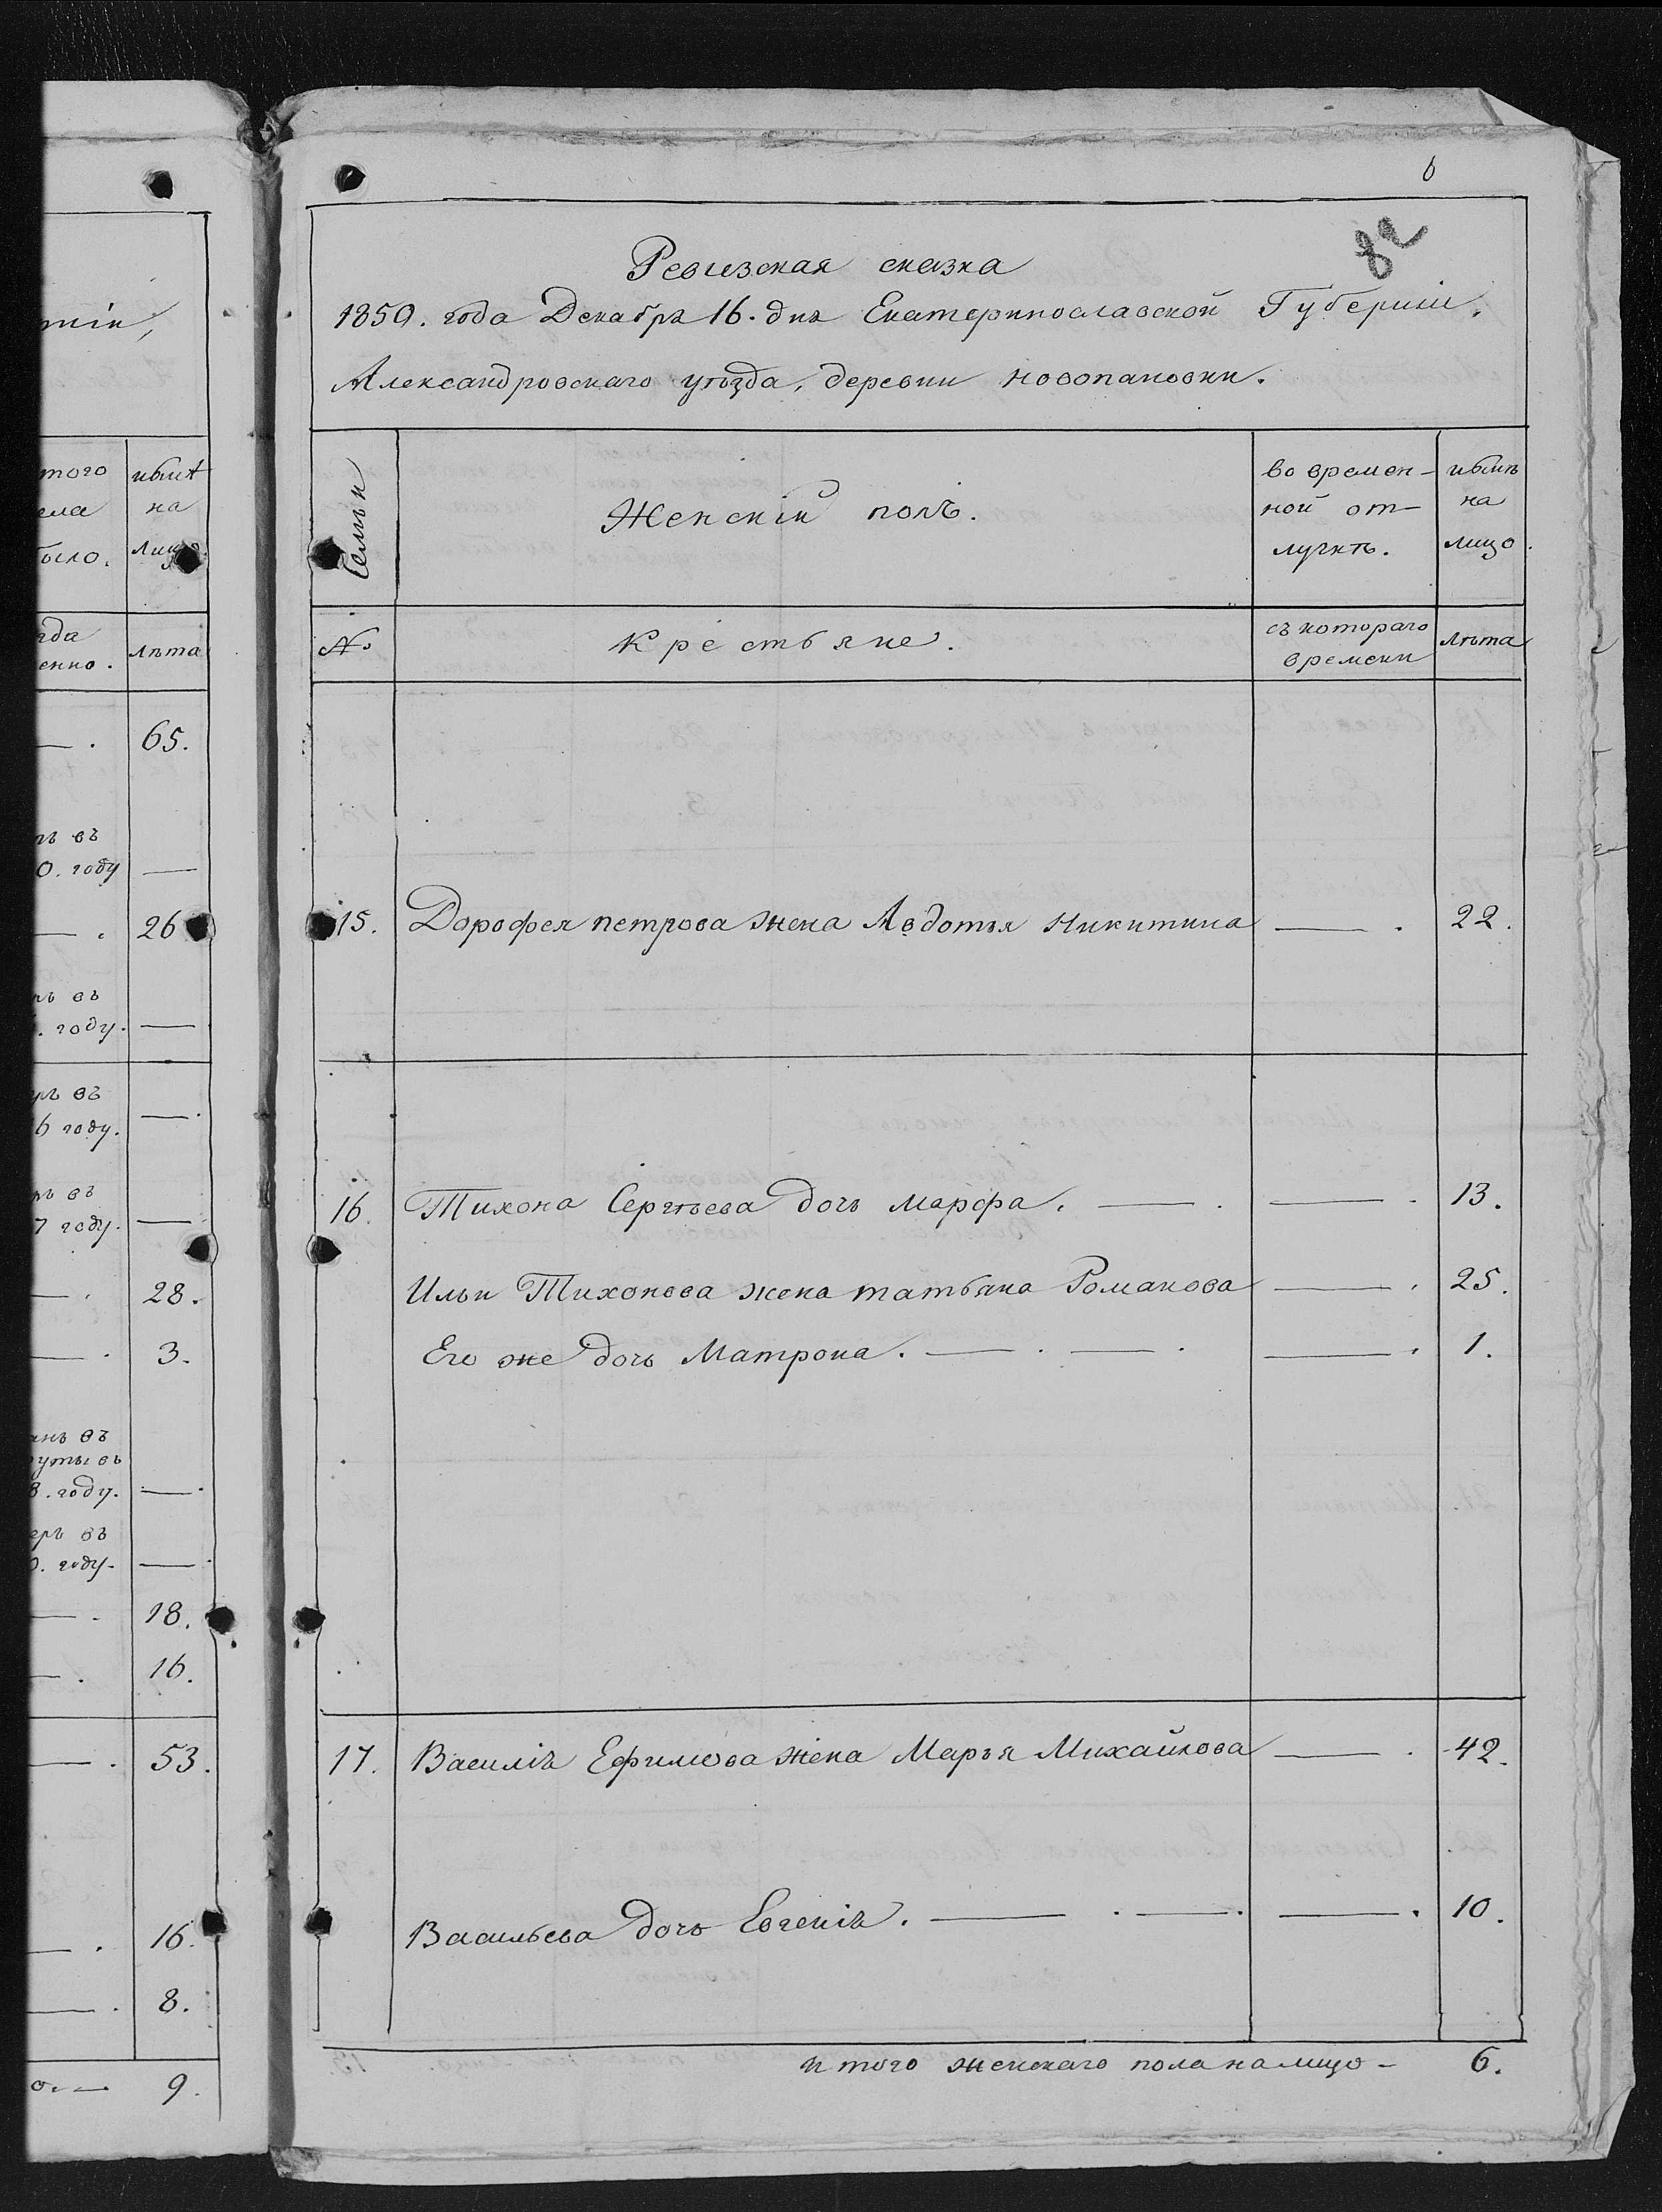 6
82
Ревизская сказка
1850. года Декабря 16. дня Екатеринославской Губерніи,
Александровскаго уѣзда, деревни новопановки.
Семьи
Женскій полъ.
во времен-
ной от-
лучкѣ.
нынѣ
на
лицо.
№
Крестьяне.
съ котораго
времени
лѣта
15. Дорофея петрова жена Авдотья Никитина — . 22.
16. Тихона Сергѣева дочь марфа. — . — . 13.
Ильи Тихонова жена татьяна Романова — . 25.
Его же дочь Матрона. — . — . — . 1.
17. Василія Ефимова жена Марья Михайлова — . 42.
Васильева дочь Евгенія. — . — . — . 10.
итого женскаго пола налицо — 6.
тіи,
того
ела
было.
нынѣ
на
лицо.
года
енно.
лѣта
— . 65.
ръ въ
0. году —
— . 26
ръ въ
. году. —
ръ въ
6 году. — .
ръ въ
7 году. —
— . 28.
— . 3.
анъ въ
руты въ
8. году. — .
еръ въ
0. году. — .
— . 18.
— . 16.
— . 53.
— . 16.
— . 8.
о. — 9.